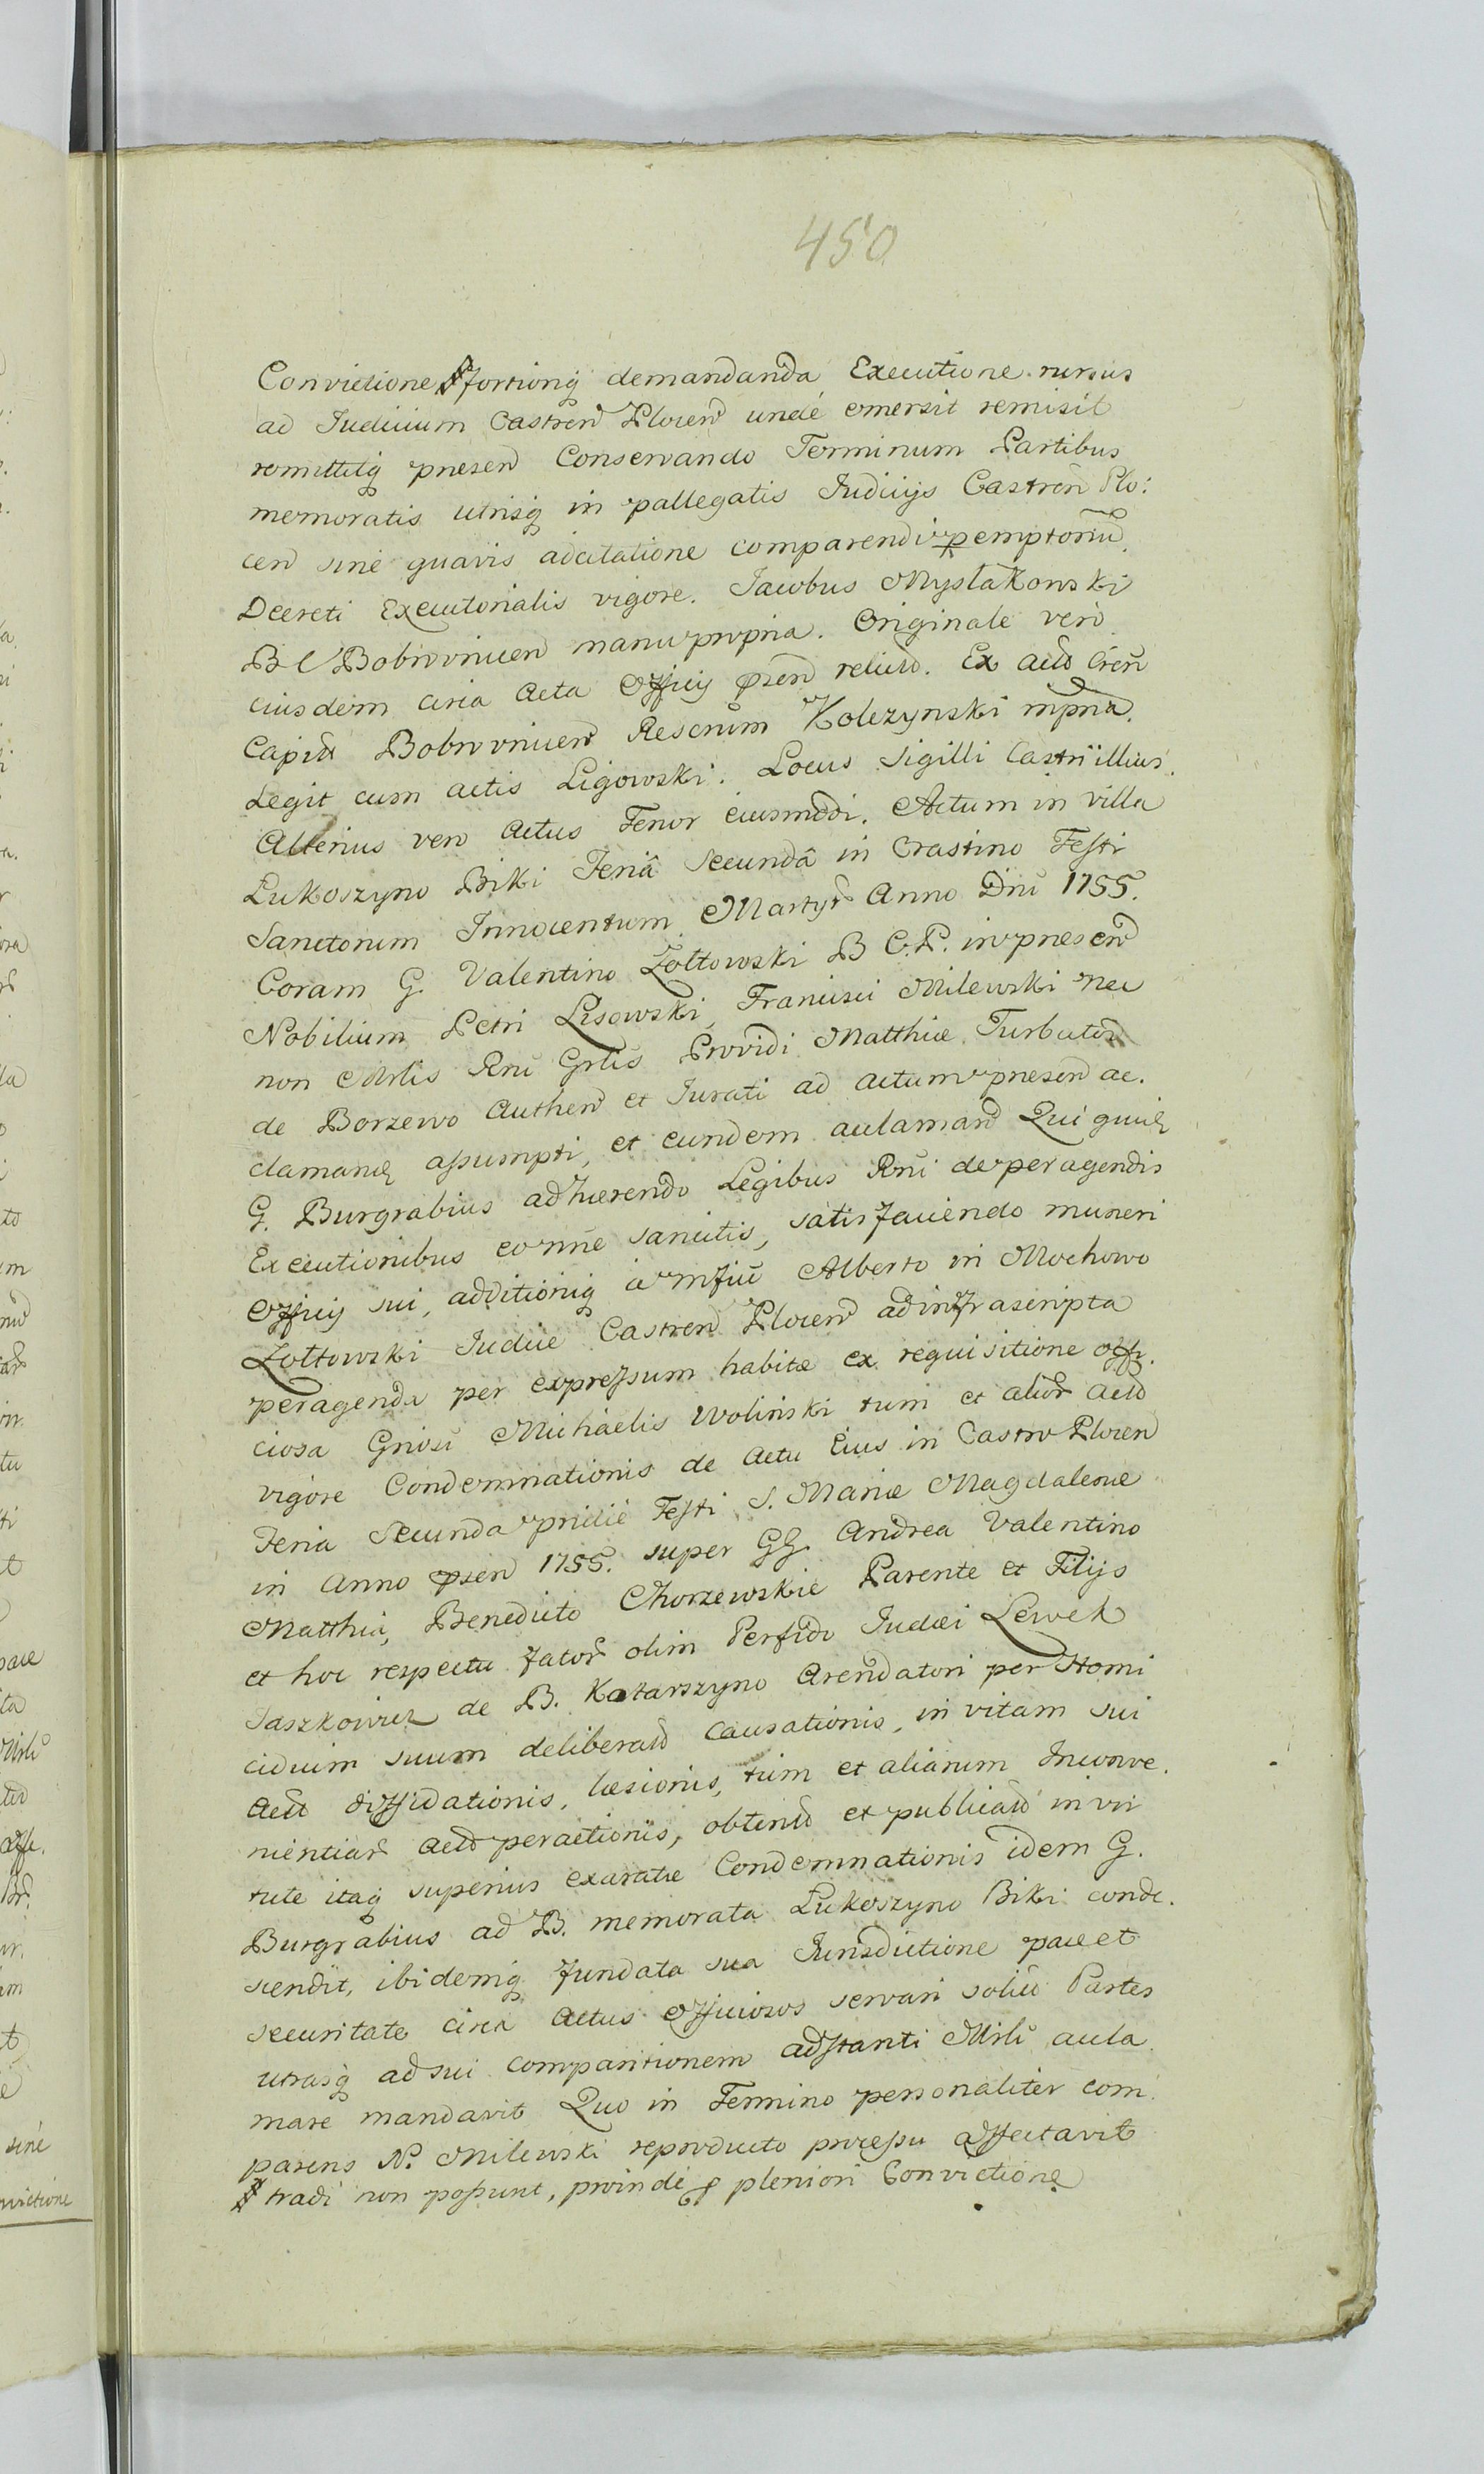 450
Convictione fortioriq demandanda Executione rursus
ad Iudicium Castren Plocen unde emersit remisit
remittitq presen Conservando Terminum Partibus
memoratis utrisq in pallegatis Iudicijs Castren Plo:
cen sine quavis adcitatione comparendi pemptoriu
Dcereti Executorialis vigore. Iacobus Mystakowski
B C Bobrovnicen manu propria. Originale vero
eiusdem circa Acta Officij psen relict. Ex Act Cren
Capit Bobrovnicen Rescrium Kolczynski mpria.
Legit cum actis Ligowski. Locus Sigilli Castri illius.
Alterius vero Actus Tenor eiusmodi. Actum in villa
Lukoszyno Biki Feriâ Secundâ in Crastino Festi
Sanctorum Innocentum Martyr Anno Dni 1755.
Coram G. Valentino Zołtowski B C. P. in presen
Nobilium Petri Lisowski, Francisci Milewski nec
non Mrlis Rni Grlis Providi Matthiæ Turbator
de Borzewo Authen et Iurati ad actum presen ac.
clamandæ assumpti, et eundem aclaman Qui quidem
G. Burgrabius adhærendo Legibus Rni de peragendis
Executionibus eo nne sancitis, satisfaciendo muneri
Officij sui, additioniq a Mfico Alberto in Mochowo
Zołtowski Iudice Castren Plocen ad infrascripta
peragenda per expressum habitæ ex requisitione offi.
ciosa Gnrosi Michaelis Wolinski tum et alior act
vigore Condemnationis de Actu Eius in Castro Plocen
Feria Secunda pridie Festi S. Mariæ Magdalenæ
in Anno psen 1755. super GG. Andrea Valentino
Matthia, Benedicto Chorzewskie Parente et Filijs
et hoc respectu fator olim Perfido Iudæi Lewek
Iaszkowicz de B. Katarszyno Arendatori per Homi
cidium suum deliberat causationis, in vitam sui
Act diffidationis, læsionis, tum et aliarum Inconve.
nientiar Act peractionis, obtent et publicat in vir
tute itaq superius exaratæ Condemnationis idem G.
Burgrabius ad B. memorata Lukoszyno Biki conde.
scendit, ibidemq fundata sua Iurisdictione pace et
securitate circa Actus officiosos servari solit Partes
utrasq ad sui comparitionem adstanti Mrli acla
mare mandavit Quo in Termino personaliter com
parens N. Milewski reproducto processu affectavit
tradi non possunt, proinde p pleniori Convictione